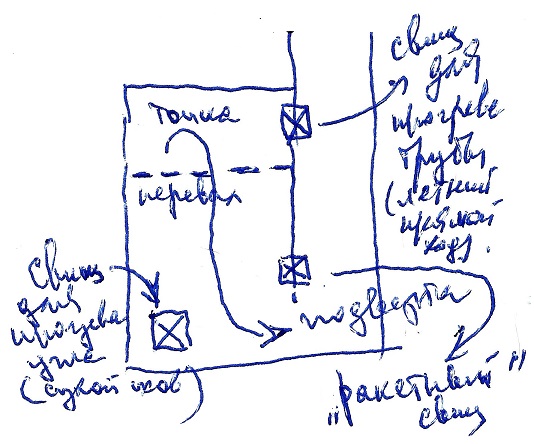 топка
перевал
свищ
для
прогрева
трубы
(летний
прямой
ход).
свищ
для
прогрева
угла
(сухой шов)
подвертка
"ракетный"
свищ